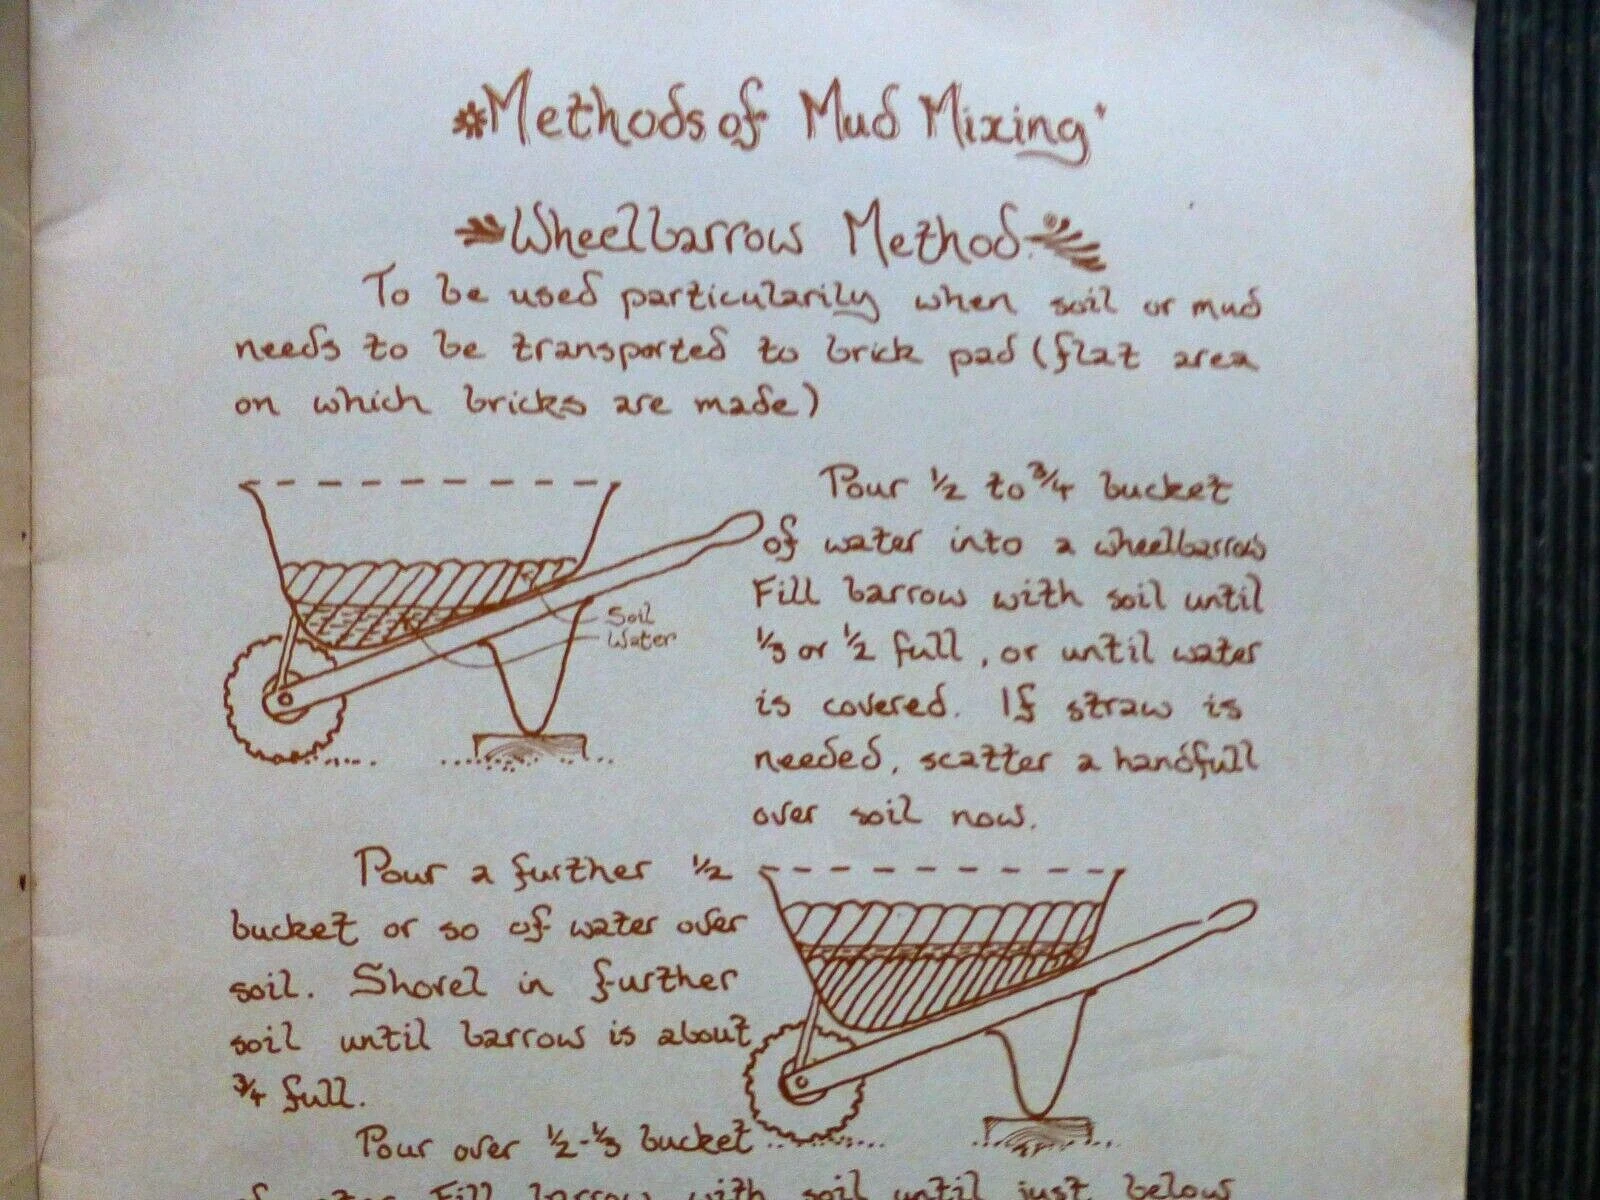 Methods of Mud Mixing
Wheelbarrow Method.
To be used particularily when soil or mud
needs to be transported to brick pad (flat area
on which bricks are made)
Pour ½ to ¾ bucket
of water into a wheelbarrow
Fill barrow with soil until
⅓ or ½ full, or until water
is covered. If straw is
needed, scatter a handfull
over soil now.
Soil
Water
Pour a further ½
bucket or so of water over
soil. Shovel in further
soil until barrow is about
¾ full.
Pour over ½-⅓ bucket
of water. Fill barrow with soil until just below